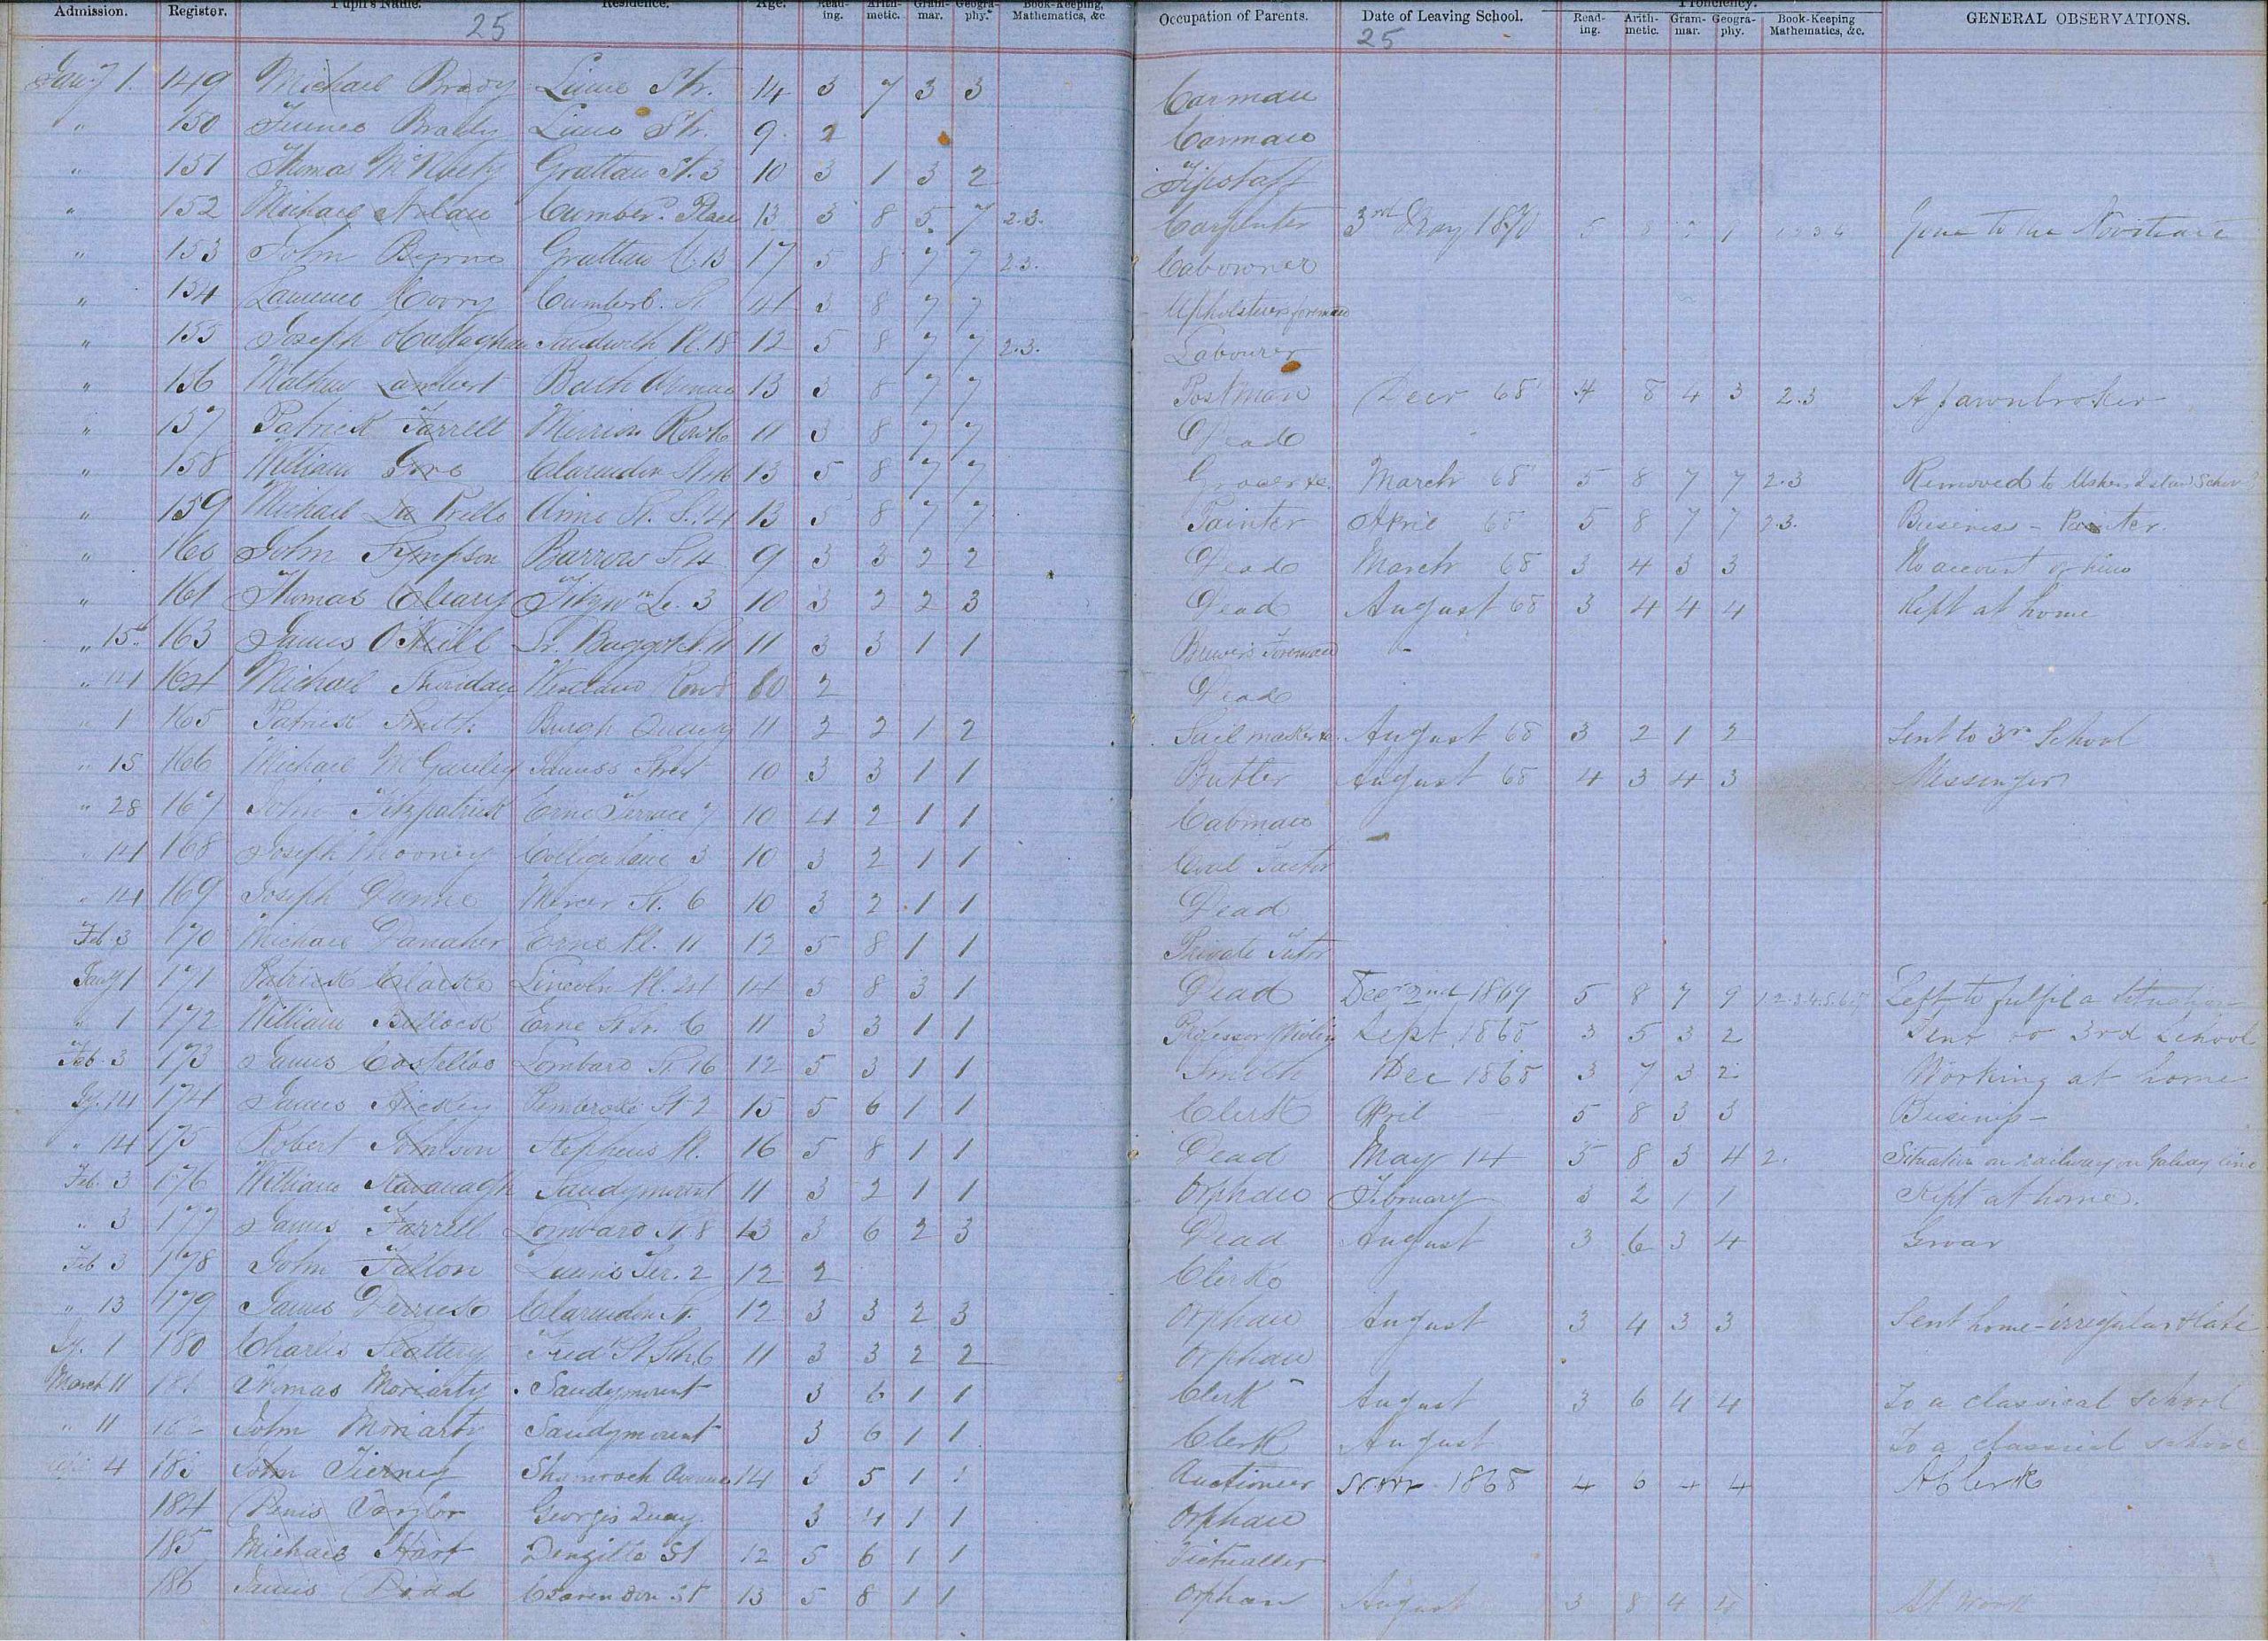 Admission. Register. Pupil's Name. Residence. Age. Read-ing. Arith-metic. Gram-mar. Geogra-phy. Book-Keeping, Mathematics, &c. Occupation of Parents. Date of Leaving School. Proficiency. Read-ing. Arith-metic. Gram-mar. Geogra-phy. Book-Keeping Mathematics, &c. GENERAL OBSERVATIONS.
25 25
Jany 1. 149 Michael Brady Lime Str. 14 3 7 3 3 Carman
" 150 James Brady Lime Str. 9 2 Carman
" 151 Thomas McNally Grattan St. 3 10 3 1 3 2 Tipstaff
" 152 Michael Nolan Cumberd. Place 13 3 8 5 7 2.3. Carpenter 3rd May 1870 5 8 Gone to the Novitiate
" 153 John Byrne Grattan 13 17 5 8 7 7 2.3. Cabowner
" 154 Laurence Cumberd. St 3 8 7 7 Upholsterers foreman
" 155 Joseph O'Callaghan Sandwith Pl. 18 12 5 8 7 7 2.3. Labourer
" 156 Mathew Lambert Bath Avenue 13 3 8 7 7 Postman Decr 68 4 8 4 3 2.3 A pawnbroker
" 157 Patrick Farrell Merrion Row 11 3 8 7 7 Dead
" 158 William Clarendon St. 13 5 8 7 7 Grocer &c. March 68 5 8 7 7 2.3 Removed to Ushers Island School
" 159 Michael Anne St. S. 13 5 8 7 7 Painter April 68 5 8 7 7 2.3. Business - Painter.
" 160 John Sympson Barrow St 9 3 3 2 2 Dead March 68 3 4 3 3 No account of him
" 161 Thomas Cleary Fitzwm Le. 3 10 3 2 2 3 Dead August 68 3 4 4 4 Kept at home
" 15 163 James O'Neill Lr. Baggot St. 11 11 3 3 1 1 Brewer's Foreman
" 14 164 Michael Sheridan Westland Row 2 Dead
" 1 165 Patrick Smith Burgh Quay 11 2 2 1 2 Sail maker &c. August 68 3 2 1 2 Sent to 3rd School
" 15 166 Michael James's Street 10 3 3 1 1 Butler August 68 4 3 4 3 Messenger
" 28 167 John Fitzpatrick Erne Terrace 7 10 4 2 1 1 Cabman
" 14 168 Joseph Mooney College Lane 3 10 3 2 1 1 Coal Factor
" 14 169 Joseph Dunne Mercer St. 6 10 3 2 1 1 Dead
Feb. 3 170 Michael Danaher Erne Pl. 11 12 5 8 1 1 Private Tutor
Jany 1 171 Patrick Clarke Lincoln Pl. 24 14 5 8 3 1 Dead Decr 2nd 1869 5 8 7 9 Left to fulfil a situation
" 1 172 William Bullock Erne St Lr. 6 11 3 3 1 1 Professor Violin Sept. 1868 3 5 3 2 Sent to 3rd School
Feb. 3 173 James Costelloe Lombard St. 16 12 5 3 1 1 Smith Dec 1868 3 7 3 2 Working at home
Jy. 14 174 James Hickey Pembroke St 2 15 5 6 1 1 Clerk April 5 8 3 3 Business -
" 14 175 Robert Johnson Stephens Pl. 16 5 8 1 1 Dead May 14 5 8 3 4 2. Situation on railway on Galway line
Feb. 3 176 William Kavanagh Sandymount 11 3 2 1 1 Orphan February 3 2 1 1 Kept at home.
" 3 177 James Farrell Lombard St. 8 13 3 6 2 3 Dead August 3 6 3 4
Feb 3 178 John Fallon Ter. 2 12 2 Clerk
" 13 179 James Derrick Clarendon St. 12 3 3 2 3 Orphan August 3 4 3 3 Sent home - irregular & late
Jy. 1 180 Charles Slattery Fred St Sth. 6 11 3 3 2 2 Orphan
March 11 181 Thomas Moriarty Sandymount 3 6 1 1 Clerk August 3 6 4 4 To a classical school
" 11 182 John Moriarty Sandymount 3 6 1 1 Clerk August To a classical school
4 183 John Tierney Shamrock Avenue 14 3 5 1 1 Auctioneer Novr 1868 4 6 4 4 A Clerk
184 Denis Taylor Georges Quay. 3 4 1 1 Orphan
185 Michael Hart Denzille St 12 5 6 1 1 Victualler
186 James Dodd Clarendon St 13 5 8 1 1 Orphan August 3 8 4 4 At work